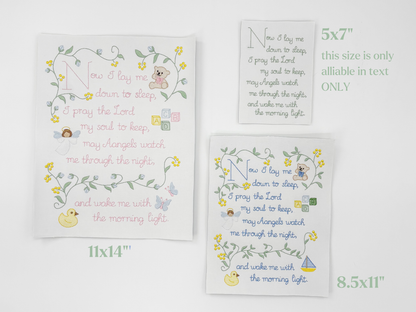 Now I lay me
down to sleep,
I pray the Lord
my soul to keep,
may Aangels watch
me through the night,
and wake me with
the morning light.
11x14"'
Now I lay me
down to sleep,
I pray the Lord
my soul to keep,
may Angels watch
me through the night,
and wake me with
the morning light.
5x7"
this size is only
alliable in text
ONLY
Now I lay me
down to sleep,
I pray the Lord
my soul to keep,
may Angels watch
me through the night,
and wake me with
the morning light.
8.5x11"